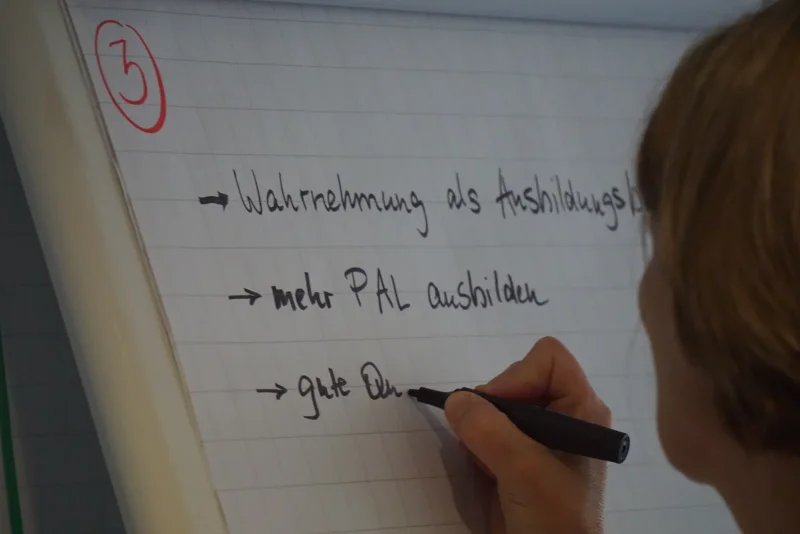 3
→ Wahrnehmung als Ausbildungsb
→ mehr PAL ausbilden
→ gute Qu